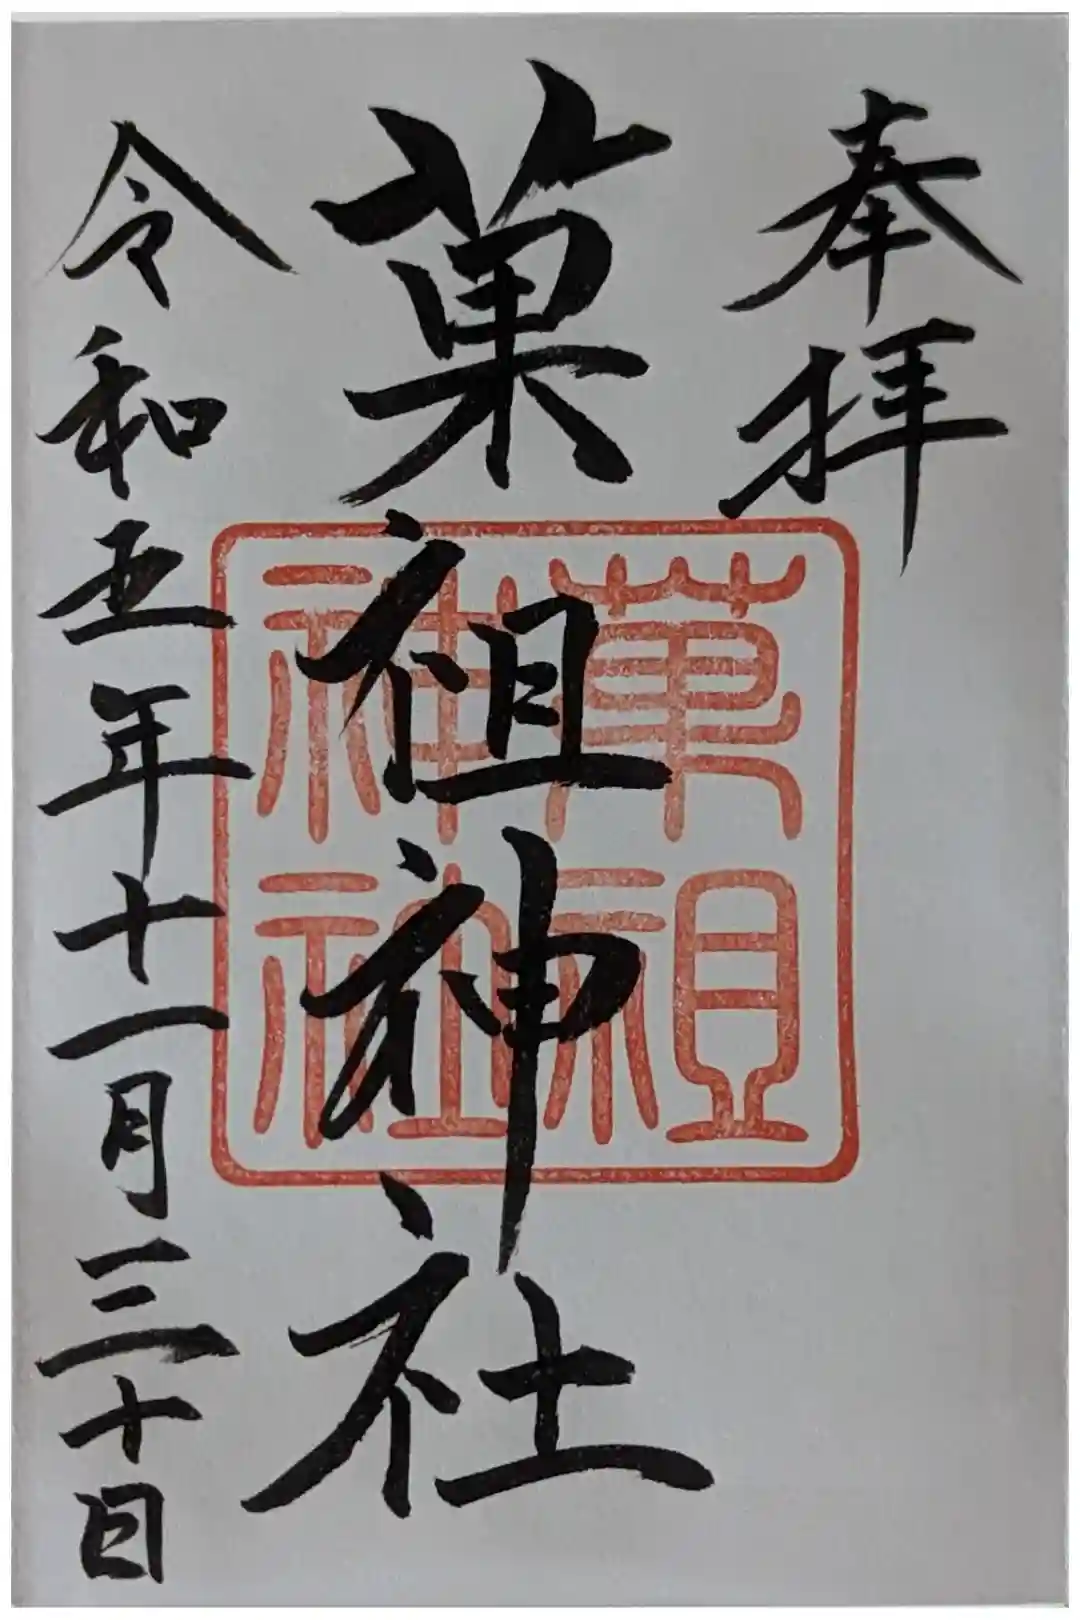 奉拝
菓祖神社
菓祖
神社
令和五年十一月三十日